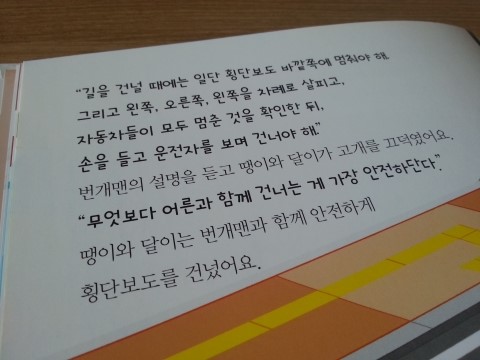 "길을 건널 때에는 일단 횡단보도 바깥쪽에 멈춰야 해.
그리고 왼쪽, 오른쪽, 왼쪽을 차례로 살피고,
자동차들이 모두 멈춘 것을 확인한 뒤,
손을 들고 운전자를 보며 건너야 해."
번개맨의 설명을 듣고 땡이와 달이가 고개를 끄덕였어요.
"무엇보다 어른과 함께 건너는 게 가장 안전하단다."
땡이와 달이는 번개맨과 함께 안전하게
횡단보도를 건넜어요.